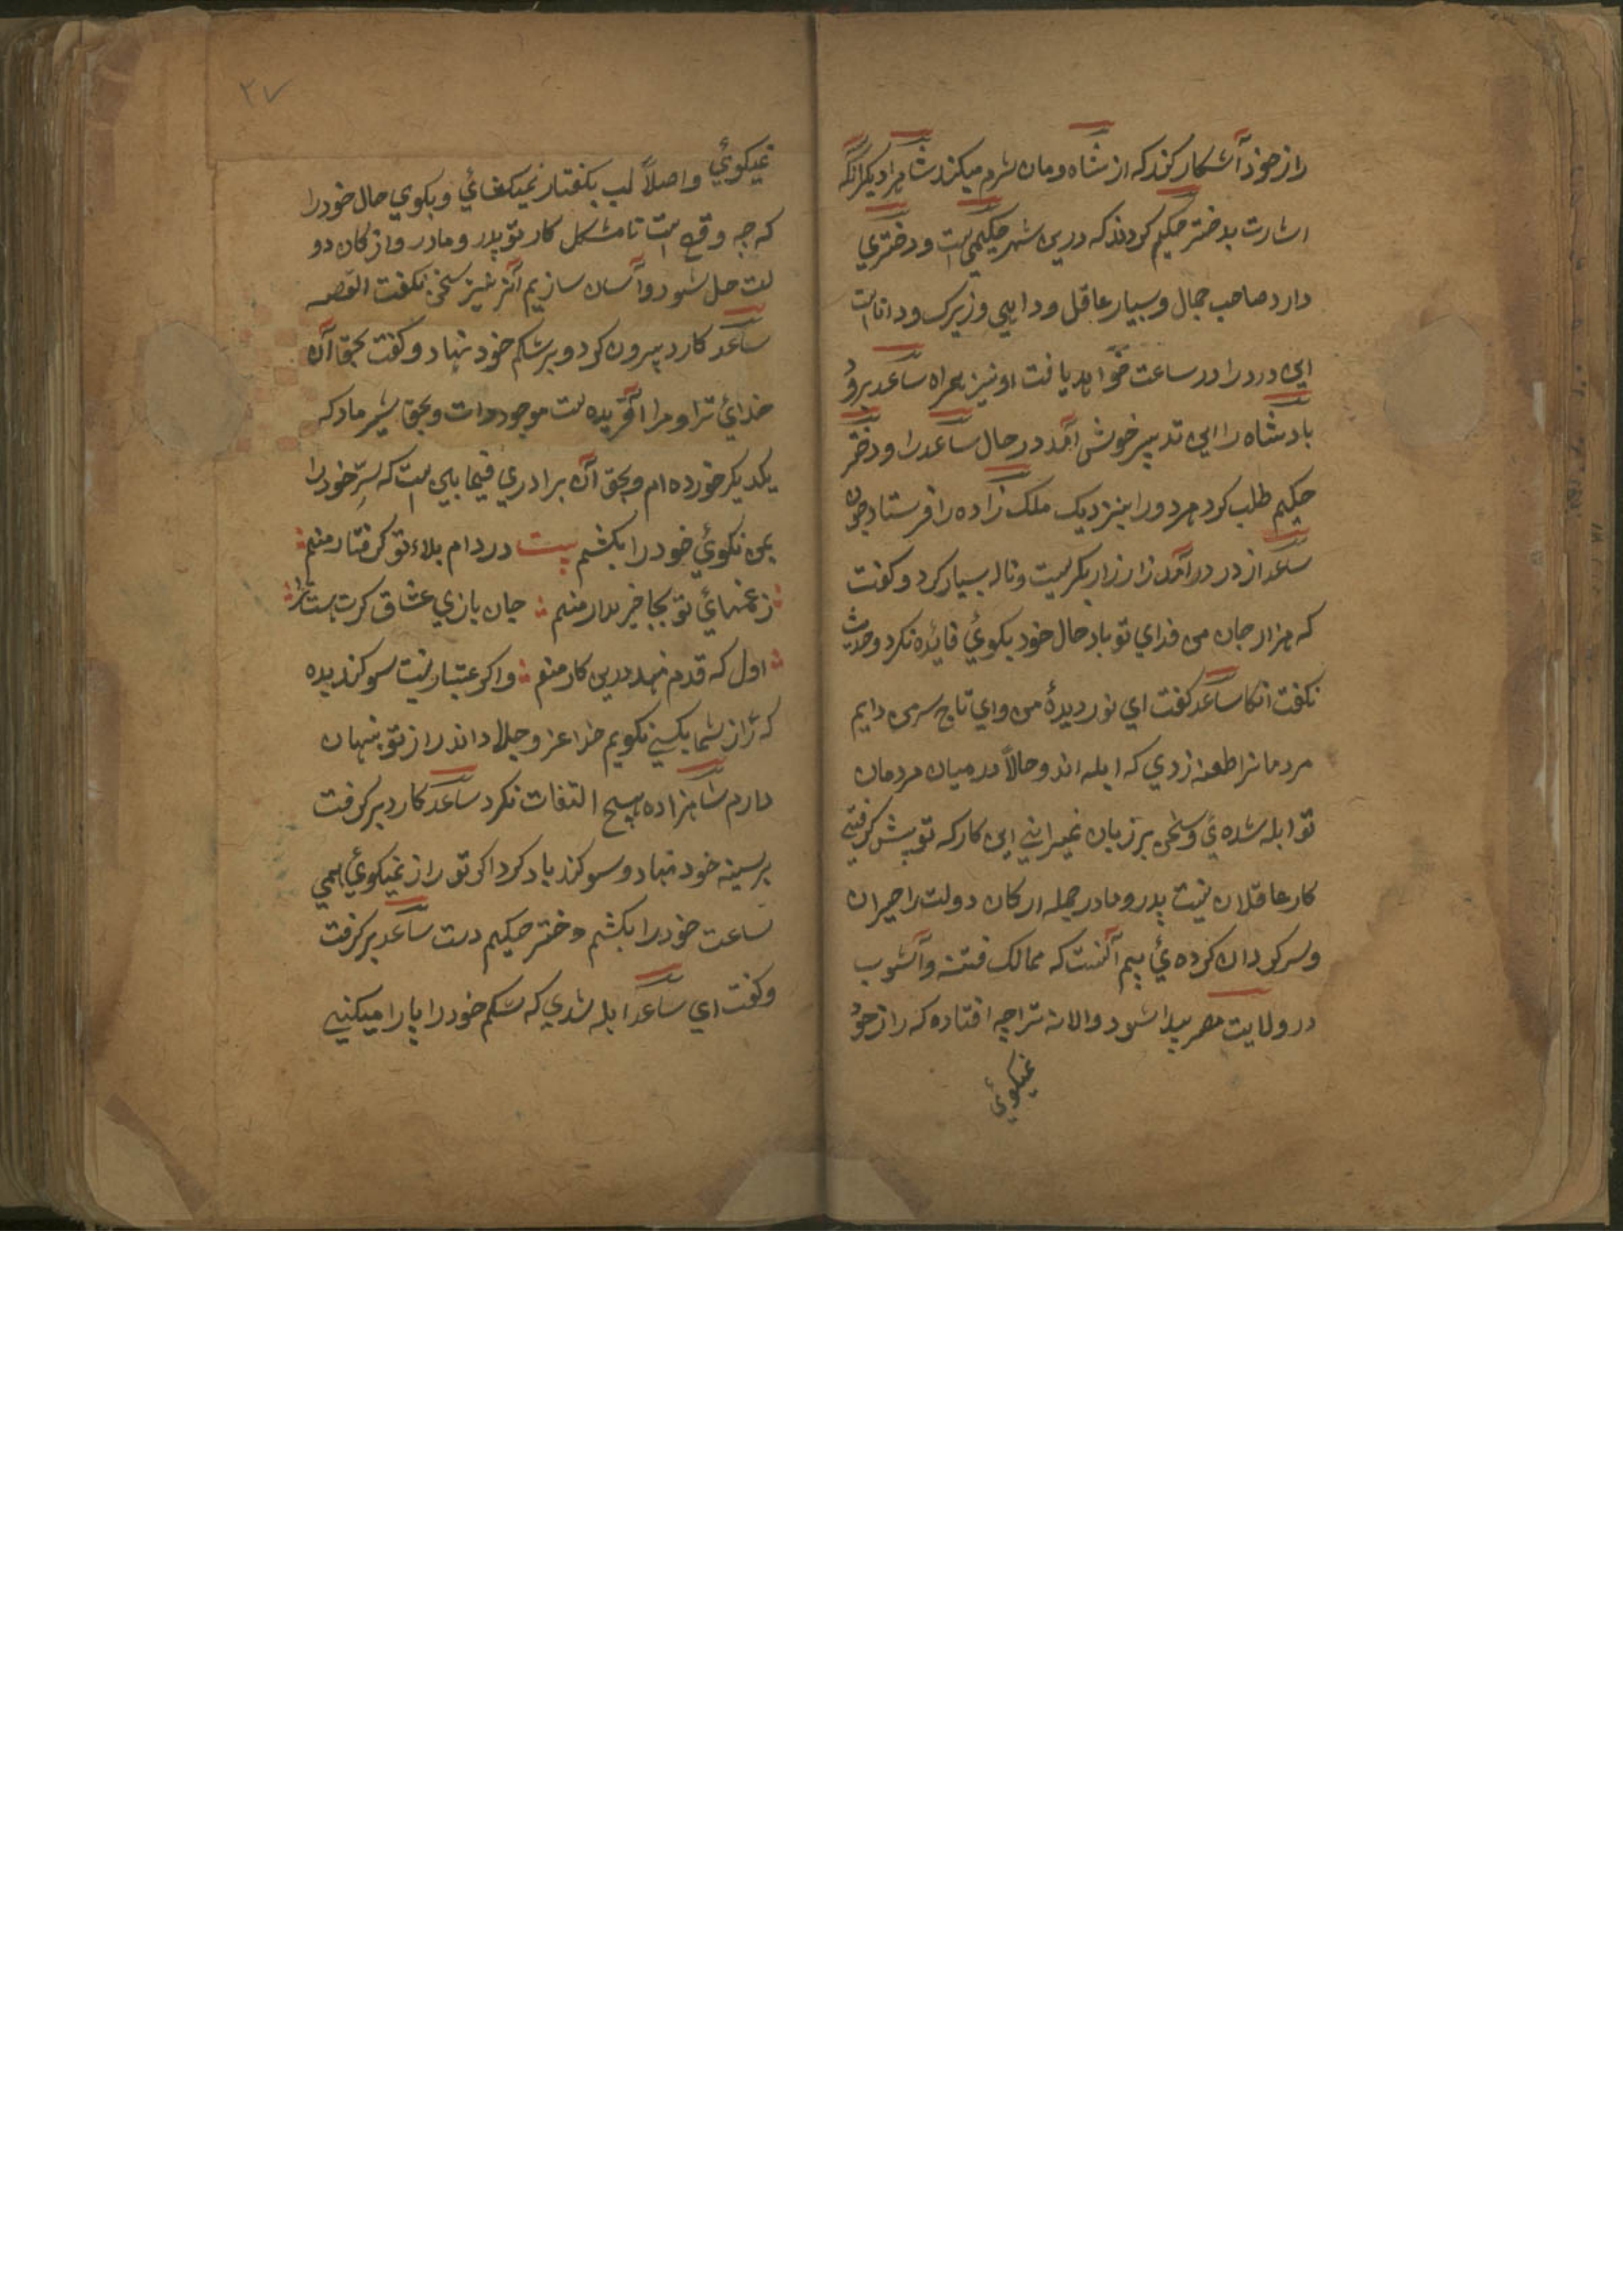 راز خود آشکار کند که از شاه و مان شرم میکند شاه را دیگر آنکه
اشارت بدختر حکیم کردند که درین شهر حکیمی است و دختری
دارد صاحب جمال و بسیار عاقل و دایی و زیرک و دانا است
این درد را در ساعت خواهد یافت او نیز همراه ساعد برود
بادشاه را این تدبیر خوش آمد در حال ساعد را و دختر
حکیم طلب کرد هر دو را بنزدیک ملک زاده را فرستاد چون
ساعد از در درآمد زار زار بگریست و ناله بسیار کرد و گفت
که هزار جان من فدای تو باد حال خود بکوئی فائده نکرد و حدیث
نکفت آنکا ساعد کفت ای نور دیدهٔ من و ای تاج سر من دایم
مردمانرا طعنه زدی که ابله اند و حالاً در میان مردمان
تو ابله شده ئی و سخن بر زبان نمیرانی این کار که تو پیش کرفتی
کار عاقلان نیست پدر و مادر جمله ارکان دولت را حیران
و سرکردان کرده ئی بیم آنست که ممالک فتنه و آشوب
در ولایت مصر پیدا شود والا نه ترا چه افتاده که راز خود
نمیکوئی
۲۷
نمیکوئی و اصلاً لب بکفتار نمیکشائی و بکوی حال خود را
که چه وقع است تا مشکل کار تو پدر و مادر و از کان دو
لت حل شود و آسان سازیم آنز نیز سخن نکفت القصه
ساعد کارد بیرون کرد و بر شکم خود نهاد و کفت بحق آن
خدائی ترا و مرا آفریده است موجودات و بحق شیر مادر که
یکدیکر خورده ام و بحق آن برادری فیمابین است که سِرّ خود را
بمن نکوئی خود را بکشم بیت در دام بلاء تو کرفتار منم
ز غمهائی تو بجا خبردار منم جان بازی عشاق کرت هست نظر
اول که قدم نهد درین کار منم و اکر عتبار نیست سوکند بده
که راز شما بکسی نکویم خدا عز و جل داند راز تو پنهان
دارم شاهزاده هیچ التفات نکرد ساعد کارد بر کرفت
بر سینه خود نهاد و سوکند یاد کرد اکر تو راز نمیکوئی همی
ساعت خود را بکشم دختر حکیم دست ساعد بر کرفت
و کفت ای ساعد ابله شدی که شکم خود را پارا میکنی